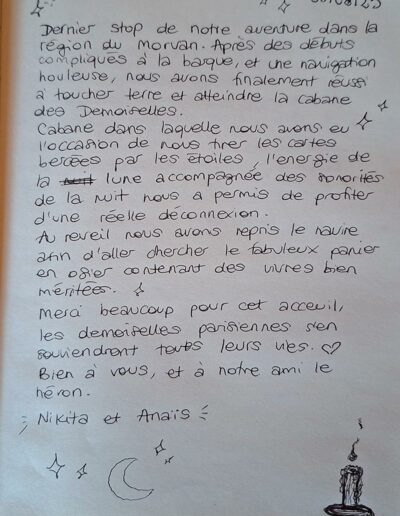 Dernier stop de notre aventure dans la
région du Morvan. Après des débuts
compliqués à la barque, et une navigation
houleuse, nous avons finalement réussi
à toucher terre et atteindre la cabane
des Demoiselles.
Cabane dans laquelle nous avons eu
l'occasion de nous tirer les cartes
bercées par les étoiles, l'energie de
la nuit lune accompagnée des sonorités
de la nuit nous a permis de profiter
d'une réelle déconnexion.
Au reveil nous avons repris le navire
afin d'aller chercher le fabuleux panier
en osier contenant des vivres bien
méritées.
Merci beaucoup pour cet acceuil,
les demoiselles parisiennes s'en
souviendront toutes leurs vies. ♡
Bien à vous, et à notre ami le
héron.
Nikita et Anaïs